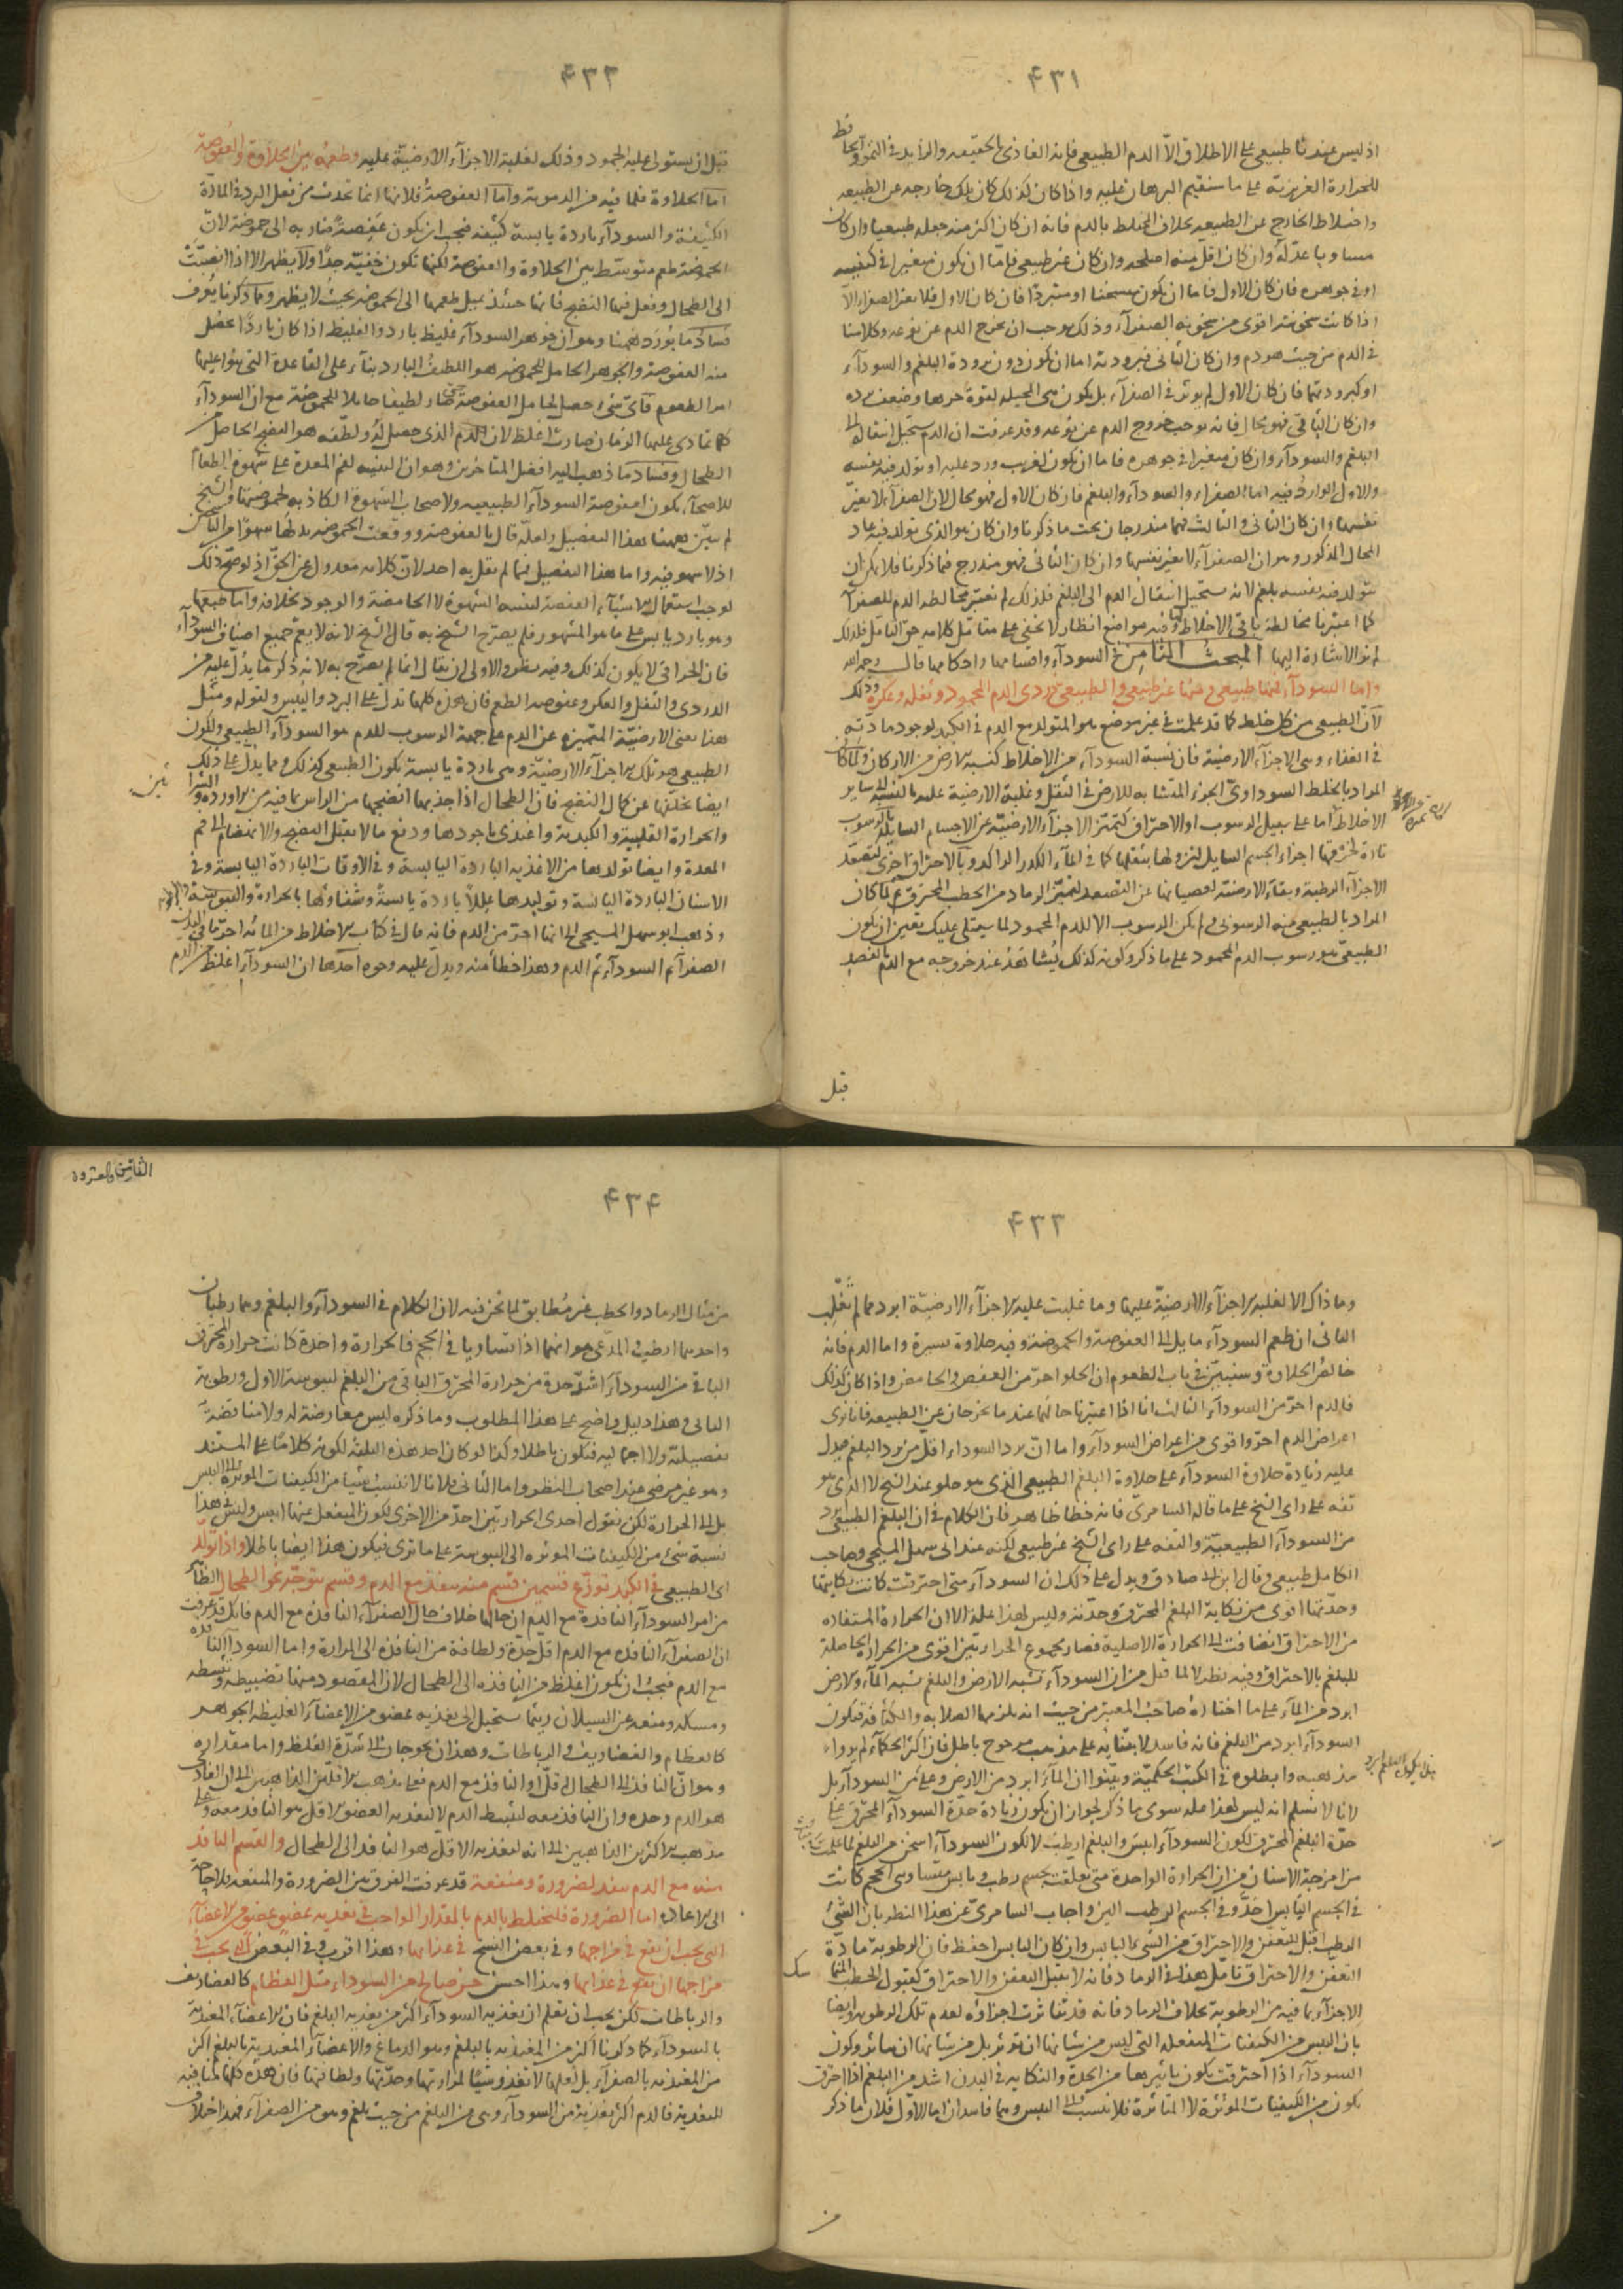 ۴۳۱
اذ ليس عندنا طبيعى على الاطلاق الا الدم الطبيعى فانه الغاذى بالحقيقه والزايد فى النمو والحافظ
للحرارة الغريزية على ما سنقيم البرهان عليه واذا كان كذلك كان تلك خارجه عن الطبيعه
واختلاط الخارج عن الطبيعه بخلاف المختلط بالدم فانه ان كان اكثر منه جعله طبيعيا وان كان
مساويا عدّله وان كان اقل منه اصلحه وان كان غير طبيعى فاما ان يكون متغيرا فى كيفيته
او فى جوهره فان كان الاول فاما ان يكون متسخنا او متبردا فان كان الاول فلا يغير الصفراء الا
اذا كانت سخونته اقوى من سخونة الصفرآء وذلك يوجب ان يخرج الدم عن نوعه وكلامنا
فى الدم من حيث هو دم وان كان الثانى فبرودته اما ان يكون دون برودة البلغم والسودآء
او كبرودتهما فان كان الاول لم يوثر فى الصفرآء بل يكون هى المحيله لقوة حرها وضعف برده
وان كان الثانى فهو محال فانه يوجب خروج الدم عن نوعه وقد عرفت ان الدم يستحيل انتقاله الى
البلغم والسودآء وان كان متغيرا فى جوهره فاما ان يكون لغريب ورد عليه او تولد فيه بنفسه
والاول الوارد فيه اما الصفراء والسودآء والبلغم فان كان الاول فهو محال لان الصفرآء لا تغيّر
نفسها وان كان الثانى والثالث فهما مندرجان تحت ما ذكرنا وان كان هو الذى تولد فيه عاد
المحال المذكور وهو ان الصفرآء لا تغير نفسها وان كان الثانى فهو مندرج فيما ذكرنا فلا يمكن ان
يتولد فيه بنفسه بلغم لانه يستحيل انتقال الدم الى البلغم فلذلك لم نعتبر مخالطة الدم للصفرآء
كما اعتبرنا مخالطة باقى الاخلاط وفيه مواضع انظار لا تخفى على متامل كلامه حق التامل فلذلك
لم نر الاشارة اليها المبحث الثامن فى السودآء واقسامها واحكامها قال رحمه الله
واما السودآء فمنها طبيعى ومنها غير طبيعى والطبيعى دردى الدم المحمود وثفله وعكره وذلك
لان الطبيعى من كل خلط كما قد علمت فى غير موضع هو المتولد مع الدم فى الكبد لوجود مادته
فى الغذاء وهى الاجزآء الارضية فان نسبة السودآء من الاخلاط كنسبة الارض من الاركان ولما كان
المراد بالخلط السوداوى الجزء المتشابه للارض فى الثقل وغلبة الارضية عليه بالنسبة الى ساير
الاخلاط اما على سبيل الرسوب او الاحتراق لتميز الاجزآء الارضية عن الاجسام السايلة بالرسوب
تارة لخرقها اجزاء الجسم السايل لنزولها بثقلها كما فى المآء الكدر الراكد وبالاحتراق اخرى لتصعد
الاجزآء الرطبة وبقاء الارضية لعصيانها عن التصعد كتميز الرماد من الحطب المحترق ولما كان
المراد بالطبيعى منه الرسوبى ولم يكن الرسوب الا للدم المحمود لما سيتلى عليك تعين ان يكون
الطبيعى هو رسوب الدم المحمود على ما ذكر وكونه كذلك يشاهد عند خروجه مع الدم بالفصد
قبل
۴۳۲
قبل ان يستولى عليه الجمود وذلك لغلبة الاجزآء الارضية عليه وطعمه بين الحلاوة والعفوصة
اما الحلاوة فلما فيه من الدموية واما العفوصة فلانها انما تحدث من فعل البرد فى المادة
الكثيفة والسودآء باردة يابسة كثيفة فيجب ان يكون عفصة ضاربه الى حموضة لان
الحموضة طعم متوسط بين الحلاوة والعفوصة لكنها تكون خفية جدا ولا يظهر الا اذا انصبت
الى الطحال وفعل فيها النضج فانها حينئذ يميل طعمها الى الحموضه بحيث لا يظهر ومما ذكرنا يعرف
فساد ما يورد ههنا وهو ان جوهر السودآء غليظ بارد والغليظ اذا كان باردا حصل
منه العفوصة والجوهر الحامل للحموضه هو اللطيف البارد بنآء على القاعدة التى بنوا عليها
امر الطعوم فاى شى حصل لحامل العفوصة حتى صار لطيفا حاملا للحموضة مع ان السودآء
كلما تمادى عليها الزمان صارت اغلظ لان الدم الذى حصل له ولطفه هو النضج الحاصل من
الطحال وفساد ما ذهب اليه افضل المتاخرين وهو ان التنبيه لفم المعدة على شهوة الطعام
للاصحآء يكون لعفوصة السودآء الطبيعيه ولاصحاب الشهوة الكاذبه لحموضتها والشيخ
لم يبين ههنا هذا التفصيل ولعله قال بالعفوصة ووقعت الحموضه بدلها سهوا من الناسخ
اذ لا سهو فيه واما هذا التفصيل فما لم يقل به احد لان كلامه معدول عن الحق اذ لو صح ذلك
لوجب استعمال الاشياء العفصة لتنبيه الشهوة لا الحامضة والوجود بخلافه واما طبعها
وهو بارد يابس على ما هو المشهور فلم يصرح الشيخ به قال الشيخ لانه لا يعم جميع اصناف السودآء
فان الحراقى لا يكون كذلك وفيه نظر والاولى ان يقال انما لم يصرح به لانه ذكر ما يدل عليه من
الدردى والثفل والعكر وعفوصة الطعم فان هذه كلها تدل على البرد واليبس ولتولد ومثل
هذا يعنى الارضية المتميزه عن الدم على جهة الرسوب للدم هو السودآء الطبيعى ولكون
الطبيعى هو تلك الاجزآء الارضية وهى باردة يابسة يكون الطبيعى كذلك ومما يدل على ذلك
ايضا تخلفها عن كمال النضج فان الطحال اذا جذبها انضجها من الراس بما فيه من الاوردة والشرائين
والحرارة القلبية والكبدية واغتذى باجودها ودفع ما لا يقبل النضج والانهضام الى فم
المعدة وايضا تولدها من الاغذيه الباردة اليابسة وفى الاوقات الباردة اليابسة وفى
الاسنان الباردة اليابسة وتوليدها عللا باردة يابسة وشفاؤها بالحرارة والرطوبة
وذهب ابو سهل المسيحى الى انها احرّ من الدم فانه قال فى كتاب الاخلاط من المائه احرّ ما فى البدن
الصفرآء ثم السودآء ثم الدم وهذا خطأ منه ويدل عليه وجوه احدها ان السودآء اغلظ من الدم
۴۳۳
وما ذاك الا لغلبة الاجزآء الارضية عليها وما غلبت عليه الاجزآء الارضية ابرد مما لم تغلب
الثانى ان طعم السودآء مايل الى العفوصة والحموضة وفيه حلاوة يسيرة واما الدم فانه
خالص الحلاوة وسنبين فى باب الطعوم ان الحلو احرّ من العفص والحامض واذا كان كذلك
فالدم احرّ من السودآء الثالث انا اذا اعتبرنا حالهما عندما يخرجان عن الطبيعه فانا نرى
اعراض الدم احرّ واقوى من اعراض السودآء واما ان برد السوداء اقل من برد البلغم فيدل
عليه زيادة حلاوة السودآء على حلاوة البلغم الطبيعى الذى هو حلو عند الشيخ لا الذى هو
تفه على راى الشيخ على ما قاله السامرى فانه خطا ظاهر فان الكلام فى ان البلغم الطبيعى ابرد
من السودآء الطبيعية والتفه على راى الشيخ غير طبيعى لكنه عند ابى سهل المسيحى وصاحب
الكامل طبيعى وقال ابن ابى صادق ويدل على ذلك ان السودآء متى احترقت كانت نكايتها
وحدتها اقوى من نكاية البلغم المحترق وحدّته وليس لهذا علة الا ان الحرارة المستفاده
من الاحتراق انضافت الى الحرارة الاصلية فصار مجموع الحرارتين اقوى من الحرارة الحاصلة
للبلغم بالاحتراق وفيه نظر لا لما قيل من ان السودآء تشبه الارض والبلغم يشبه المآء والارض
ابرد من المآء على ما اختاره صاحب المعتبر من حيث انه يلزمها الصلابه والكثافه فيكون
السودآء ابرد من البلغم فانه فاسد لابتنائه على مذهب مرجوح باطل فان اكثر الحكمآء لم يروا
مذهبه وابطلوه فى الكتب الحكمية وبيّنوا ان المآء ابرد من الارض
لانا لا نسلم انه ليس لهذا علة سوى ما ذكر لجواز ان يكون زيادة حدّة السودآء المحترق على
حدّة البلغم المحترق لكون السودآء ايبس والبلغم ارطب لا لكون السودآء اسخن من البلغم لما علمت
من امزجة الاسنان من ان الحرارة الواحدة متى تعلقت بجسم رطب ويابس متساوى الحجم كانت
فى الجسم اليابس احدّ وفى الجسم الرطب الين واجاب السامرى عن هذا النظر بان الشئ
الرطب اقبل للتعفن والاحتراق من الشى اليابس وان كان اليابس احفظ فان الرطوبة مادة
التعفن والاحتراق تامل هذا فى الرماد فانه لا يقبل التعفن والاحتراق كقبول الحطب
الاجزآء بما فيه من الرطوبة بخلاف الرماد فانه قد تناثرت اجزاؤه لعدم تلك الرطوبه وايضا
بان اليبس من الكيفيات المنفعلة التى ليس من شانها ان توثر بل من شانها ان تتاثر وكون
السودآء اذا احترقت يكون تاثيرها من الحدة والنكايه فى البدن اشد من البلغم اذا احترق
يكون من الكيفيات الموثرة لا المتاثرة فلا ننسب الى اليبس وهما فاسدان اما الاول فلان ما ذكر
من
۴۳۴
من مثال الرماد والحطب غير مطابق لما نحن فيه لان الكلام فى السودآء والبلغم وهما رطبان
واحدهما ارطب والمدعى هو انهما اذا تساويا فى الحجم فالحرارة واحدة كانت حرارة المحترق
الباقى من السودآء اشد حدة من حرارة المحترق الباقى من البلغم ليبوسة الاول ورطوبة
الثانى وهذا دليل واضح على هذا المطلوب وما ذكره ليس معارضة له ولا مناقضة
تفصيلية ولا اجمالية فيكون باطلا وكذا لو كان احد هذه الثلثة لكونه كلاما على المستند
وهو غير مرضى عند اصحاب النظر واما الثانى فلانا لا ننسب شيئا من الكيفيات الموثرة الى اليبس
بل الى الحرارة لكن نقول احدى الحرارتين احدّ من الاخرى لكون المنفعل عنها ايبس وليس هذا
نسبة شى من الكيفيات الموثره الى اليبوسة على ما ترى فيكون هذا ايضا باطلا واذا تولد
اى الطبيعى فى الكبد توزع قسمين قسم منه ينفذ مع الدم وقسم يتوجه نحو الطحال الظاهر
من امر السودآء النافذة مع الدم ان حالها خلاف حال الصفرآء النافذه مع الدم فانك قد عرفت
ان الصفرآء النافذه مع الدم اقل حدّة ولطافة من النافذة الى المرارة واما السودآء النافذة
مع الدم فيجب ان يكون اغلظ من النافذه الى الطحال لان المقصود منها تضبيطه وتبسيطه
ومسكه ومنعه عن السيلان ريثما يستحيل الى تغذيه عضو من الاعضآء الغليظه الجوهر
كالعظام والغضاريف والرباطات وهذان يحوجان الى شدة الغلظ واما مقداره
وهو ان النافذ الى الطحال اقل او النافذ مع الدم فعلى مذهب الاقلين الذاهبين الى ان الغاذى
هو الدم وحده وان النافذ معه لتبسط الدم لا لتغذيه العضو الاقل هو النافذ معه وعلى
مذهب الاكثرين الذاهبين الى انه لتغذيه الاقل هو النافذ الى الطحال والقسم النافذ
منه مع الدم ينفذ لضرورة ومنفعة قد عرفت الفرق بين الضرورة والمنفعه فلا حاجة
الى الاعاده اما الضرورة فليختلط بالدم بالمقدار الواجب فى تغذيه عضو عضو من الاعضآء
التى يجب ان يقع فى مزاجها وفى بعض النسخ فى غذائها وهذا اقرب وفى البعض التى يجب فى
مزاجها ان يقع فى غذائها وهذا احسن جزء صالح من السودآء مثل العظام كالغضاريف
والرباطات لكن يجب ان تعلم ان تغذيه السودآء اكثر من تغذيه البلغم فان الاعضآء المغتذية
بالسودآء كما ذكرنا اكثر من المغتذيه بالبلغم وهو الدماغ والاعضآء المغتذية بالبلغم اكثر
من المغتذيه بالصفرآء بل لعلها لا تغذو شيئا لمرارتها وحدتها ولطافتها فان هذه كلها منافية
للتغذية فالدم اكثر تغذية من السودآء وهى من البلغم من حيث بلغم وهو من الصفرآء فهذا خلاف